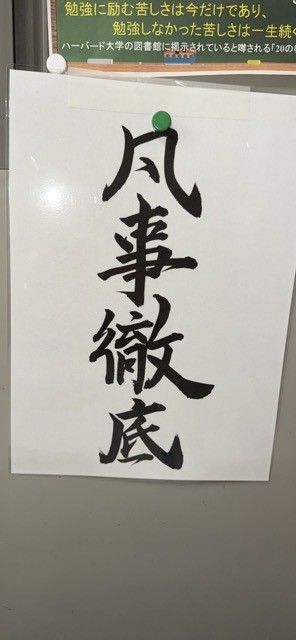 勉強に励む苦しさは今だけであり、
勉強しなかった苦しさは一生続く
ハーバード大学の図書館に掲示されていると噂される「20の
凡事徹底